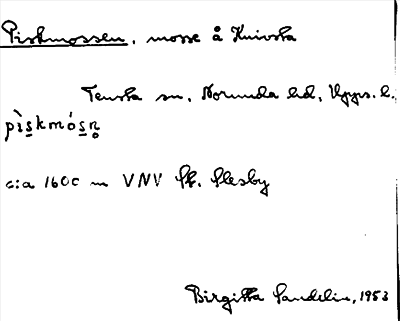 Piskmossen, mosse å Knivsta
Tensta sn, Norunda hd, Upps. l.
pìskmósn̥
c:a 1600 m VNV St. Plesby
Birgitta Sandelin, 1953